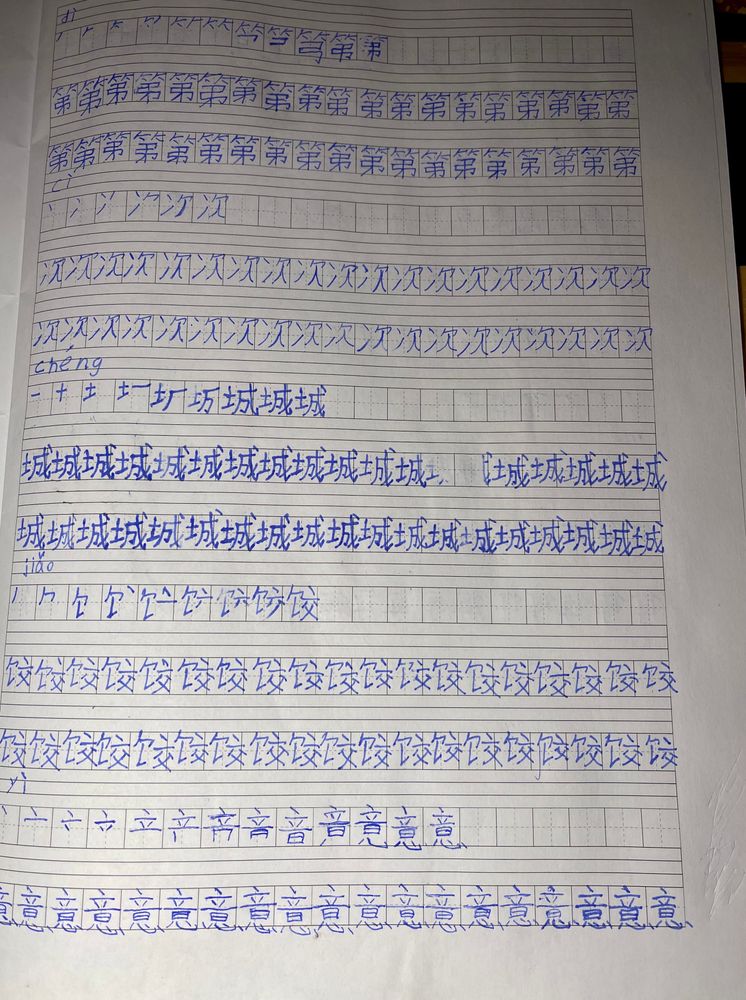 dì
第
第第第第第第第第第第第第第第第第第第第
第第第第第第第第第第第第第第第第第第第
cì
次
次次次次次次次次次次次次次次次次次次次
次次次次次次次次次次次次次次次次次次次
chéng
一 十 土 城 城 城
城城城城城城城城城城城城 城城城城城
城城城城城城城城城城城城城城城城城城城
jiǎo
饺
饺饺饺饺饺饺饺饺饺饺饺饺饺饺饺饺饺饺饺
饺饺饺饺饺饺饺饺饺饺饺饺饺饺饺饺饺饺饺
yì
立 音 意
意意意意意意意意意意意意意意意意意意意